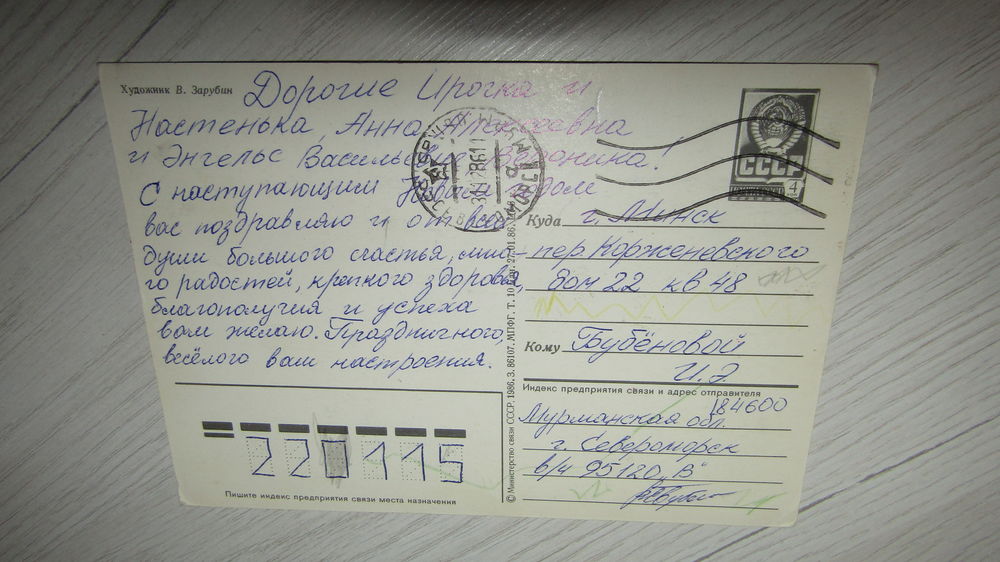 Художник В. Зарубин
Дорогие Ирочка и
Настенька, Анна Алексеевна
и Энгельс Васильевич
С наступающим Новым годом
вас поздравляю и от всей
души большого счастья, мно-
го радостей, крепкого здоровья,
благополучия и успеха
вам желаю. Праздничного,
весёлого вам настроения.
СССР
4
Куда г. Минск
пер. Корженевского
дом 22 кв 48
Кому Бубёновой
И.Э.
Индекс предприятия связи и адрес отправителя
184600
Мурманская обл.
г. Североморск
в/ч 95120 „В"
220115
Пишите индекс предприятия связи места назначения
© Министерство связи СССР, 1986. З. 86107. МПФГ. Т. 10 27.01.86.